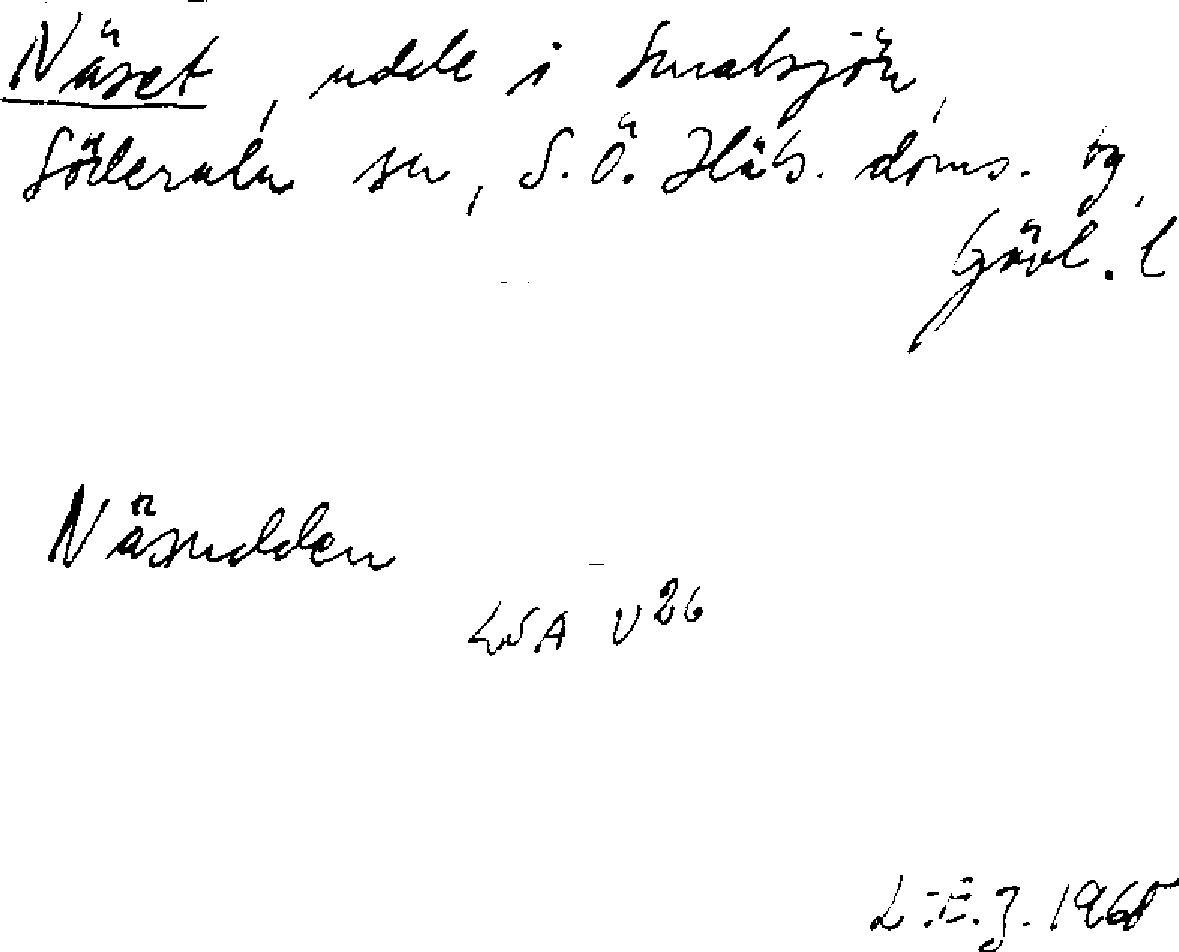 Näset, udde i Smalsjön,
Söderala sn, S.Ö. Häls. doms. tg,
Gävl. l
Näsudden
LSA V26
L.E.J. 1968